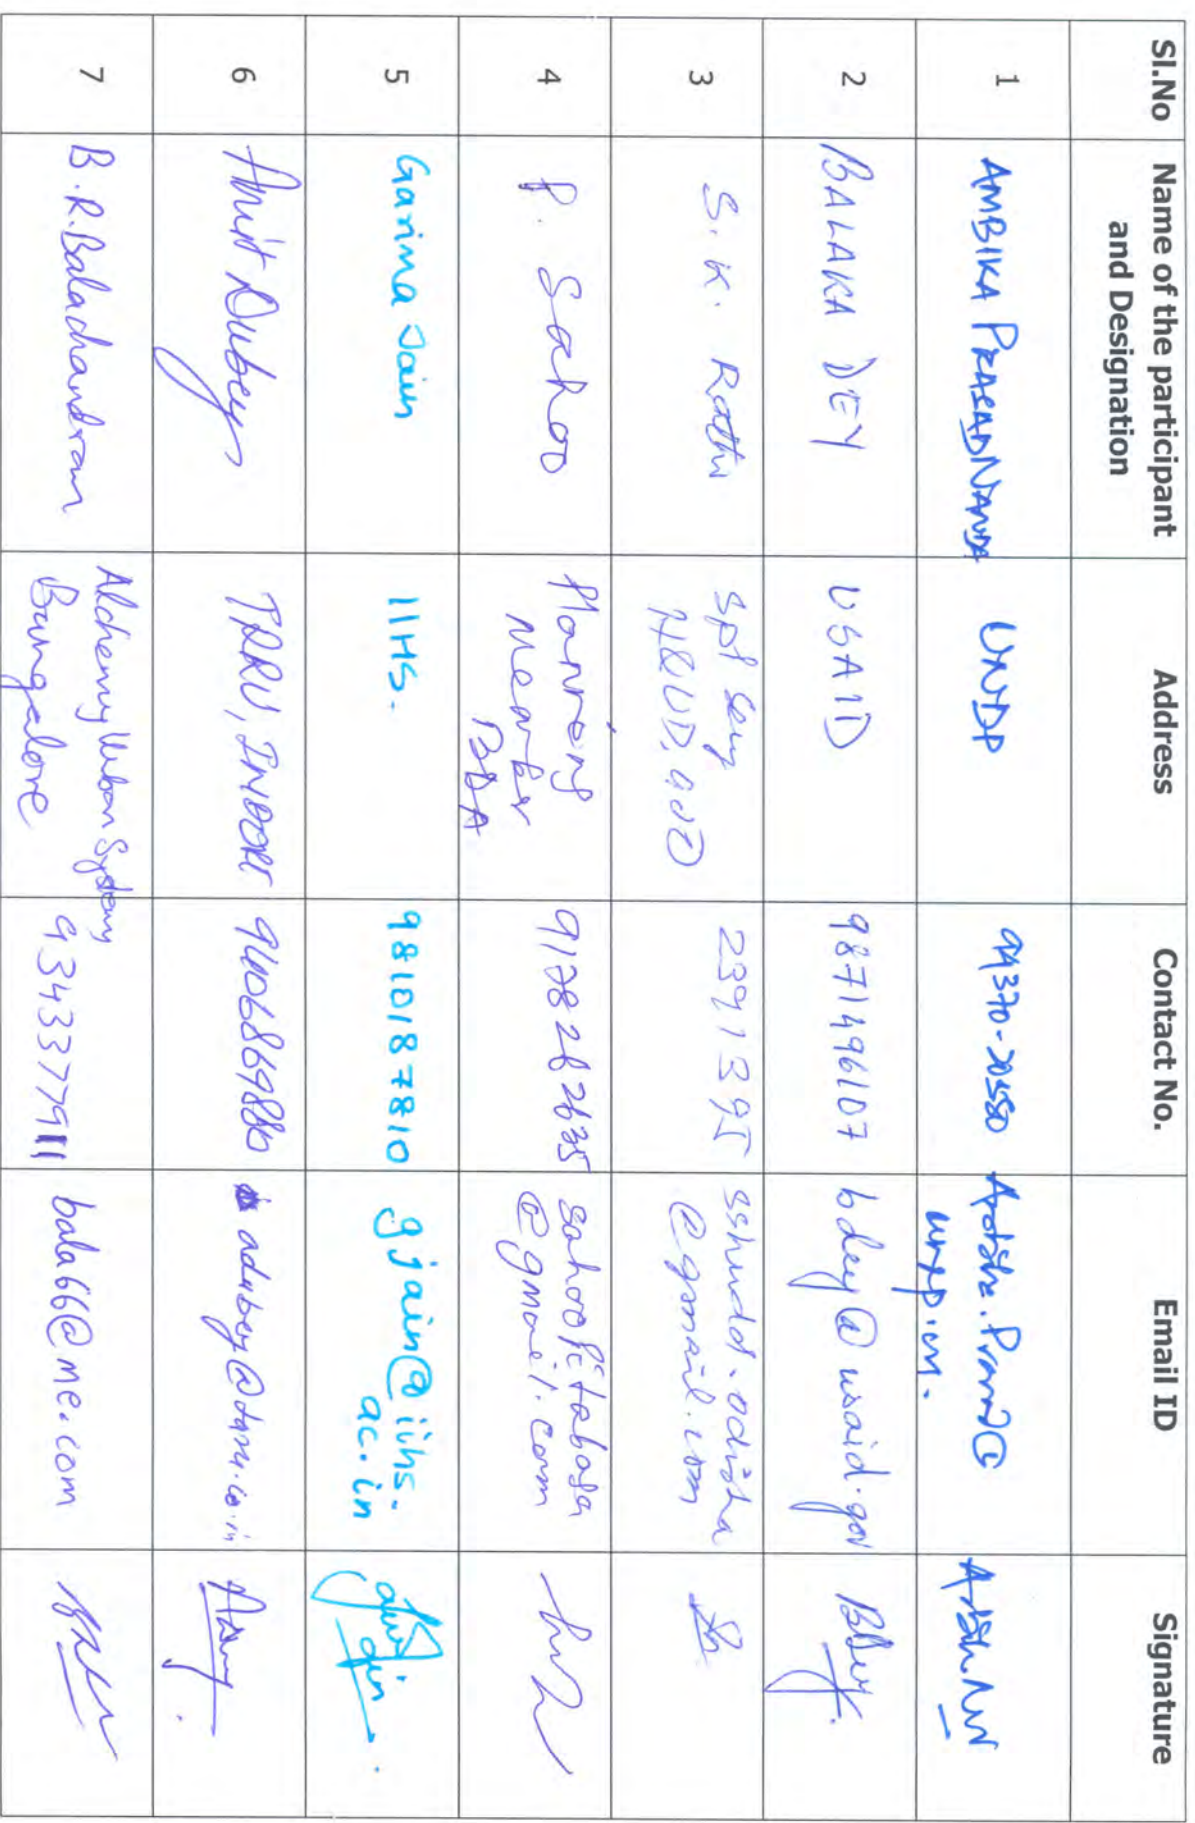 Sl.No Name of the participant and Designation Address Contact No. Email ID Signature
1 AMBIKA PRASAD NANDA UNDP 94370-20550
2 BALAKA DEY USAID 9871496107 bdey@usaid.gov BDey.
3 S. K. Rath Spl Secy 2391395 sshudd.odisha
H&UD, @gmail.com
4 P. Sahoo Planning 9178282635
Member @gmail.com
BDA
5 Garima Jain IIHS. 9810187810 gjain@iihs.
ac.in
6 Amit Dubey TARU, INDORE 9406869880 adubey@taru.co.in
7 B.R.Balachandran Alchemy Urban Systems 9343377911 bala66@me.com
Bangalore